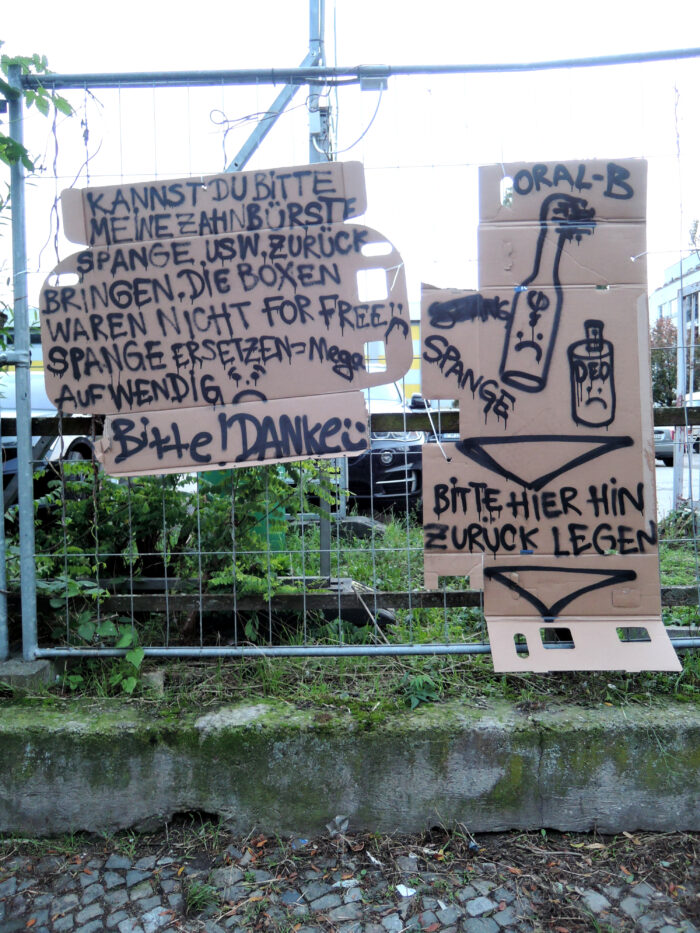 KANNST DU BITTE
MEINE ZAHNBÜRSTE
SPANGE, USW, ZURÜCK
BRINGEN, DIE BOXEN
WAREN NICHT FOR FREE
SPANGE ERSETZEN = Mega
AUFWENDIG
Bitte! DANKE
ORAL-B
SPANGE
DEO
BITTE HIER HIN
ZURÜCK LEGEN